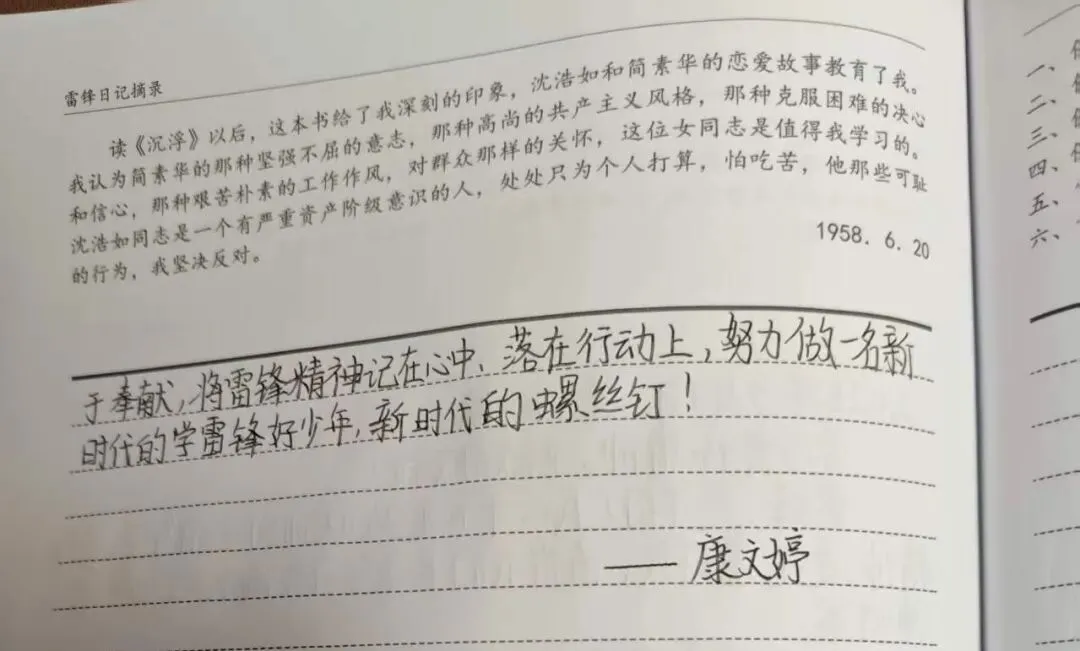 雷锋日记摘录
读《沉浮》以后，这本书给了我深刻的印象，沈浩如和简素华的恋爱故事教育了我。
我认为简素华的那种坚强不屈的意志，那种高尚的共产主义风格，那种克服困难的决心
和信心，那种艰苦朴素的工作作风，对群众那样的关怀，这位女同志是值得我学习的。
沈浩如同志是一个有严重资产阶级意识的人，处处只为个人打算，怕吃苦，他那些可耻
的行为，我坚决反对。
1958. 6. 20
于奉献，将雷锋精神记在心中、落在行动上，努力做一名新
时代的学雷锋好少年，新时代的螺丝钉！
——康文婷
一、
二、
三、
四、
五、
六、